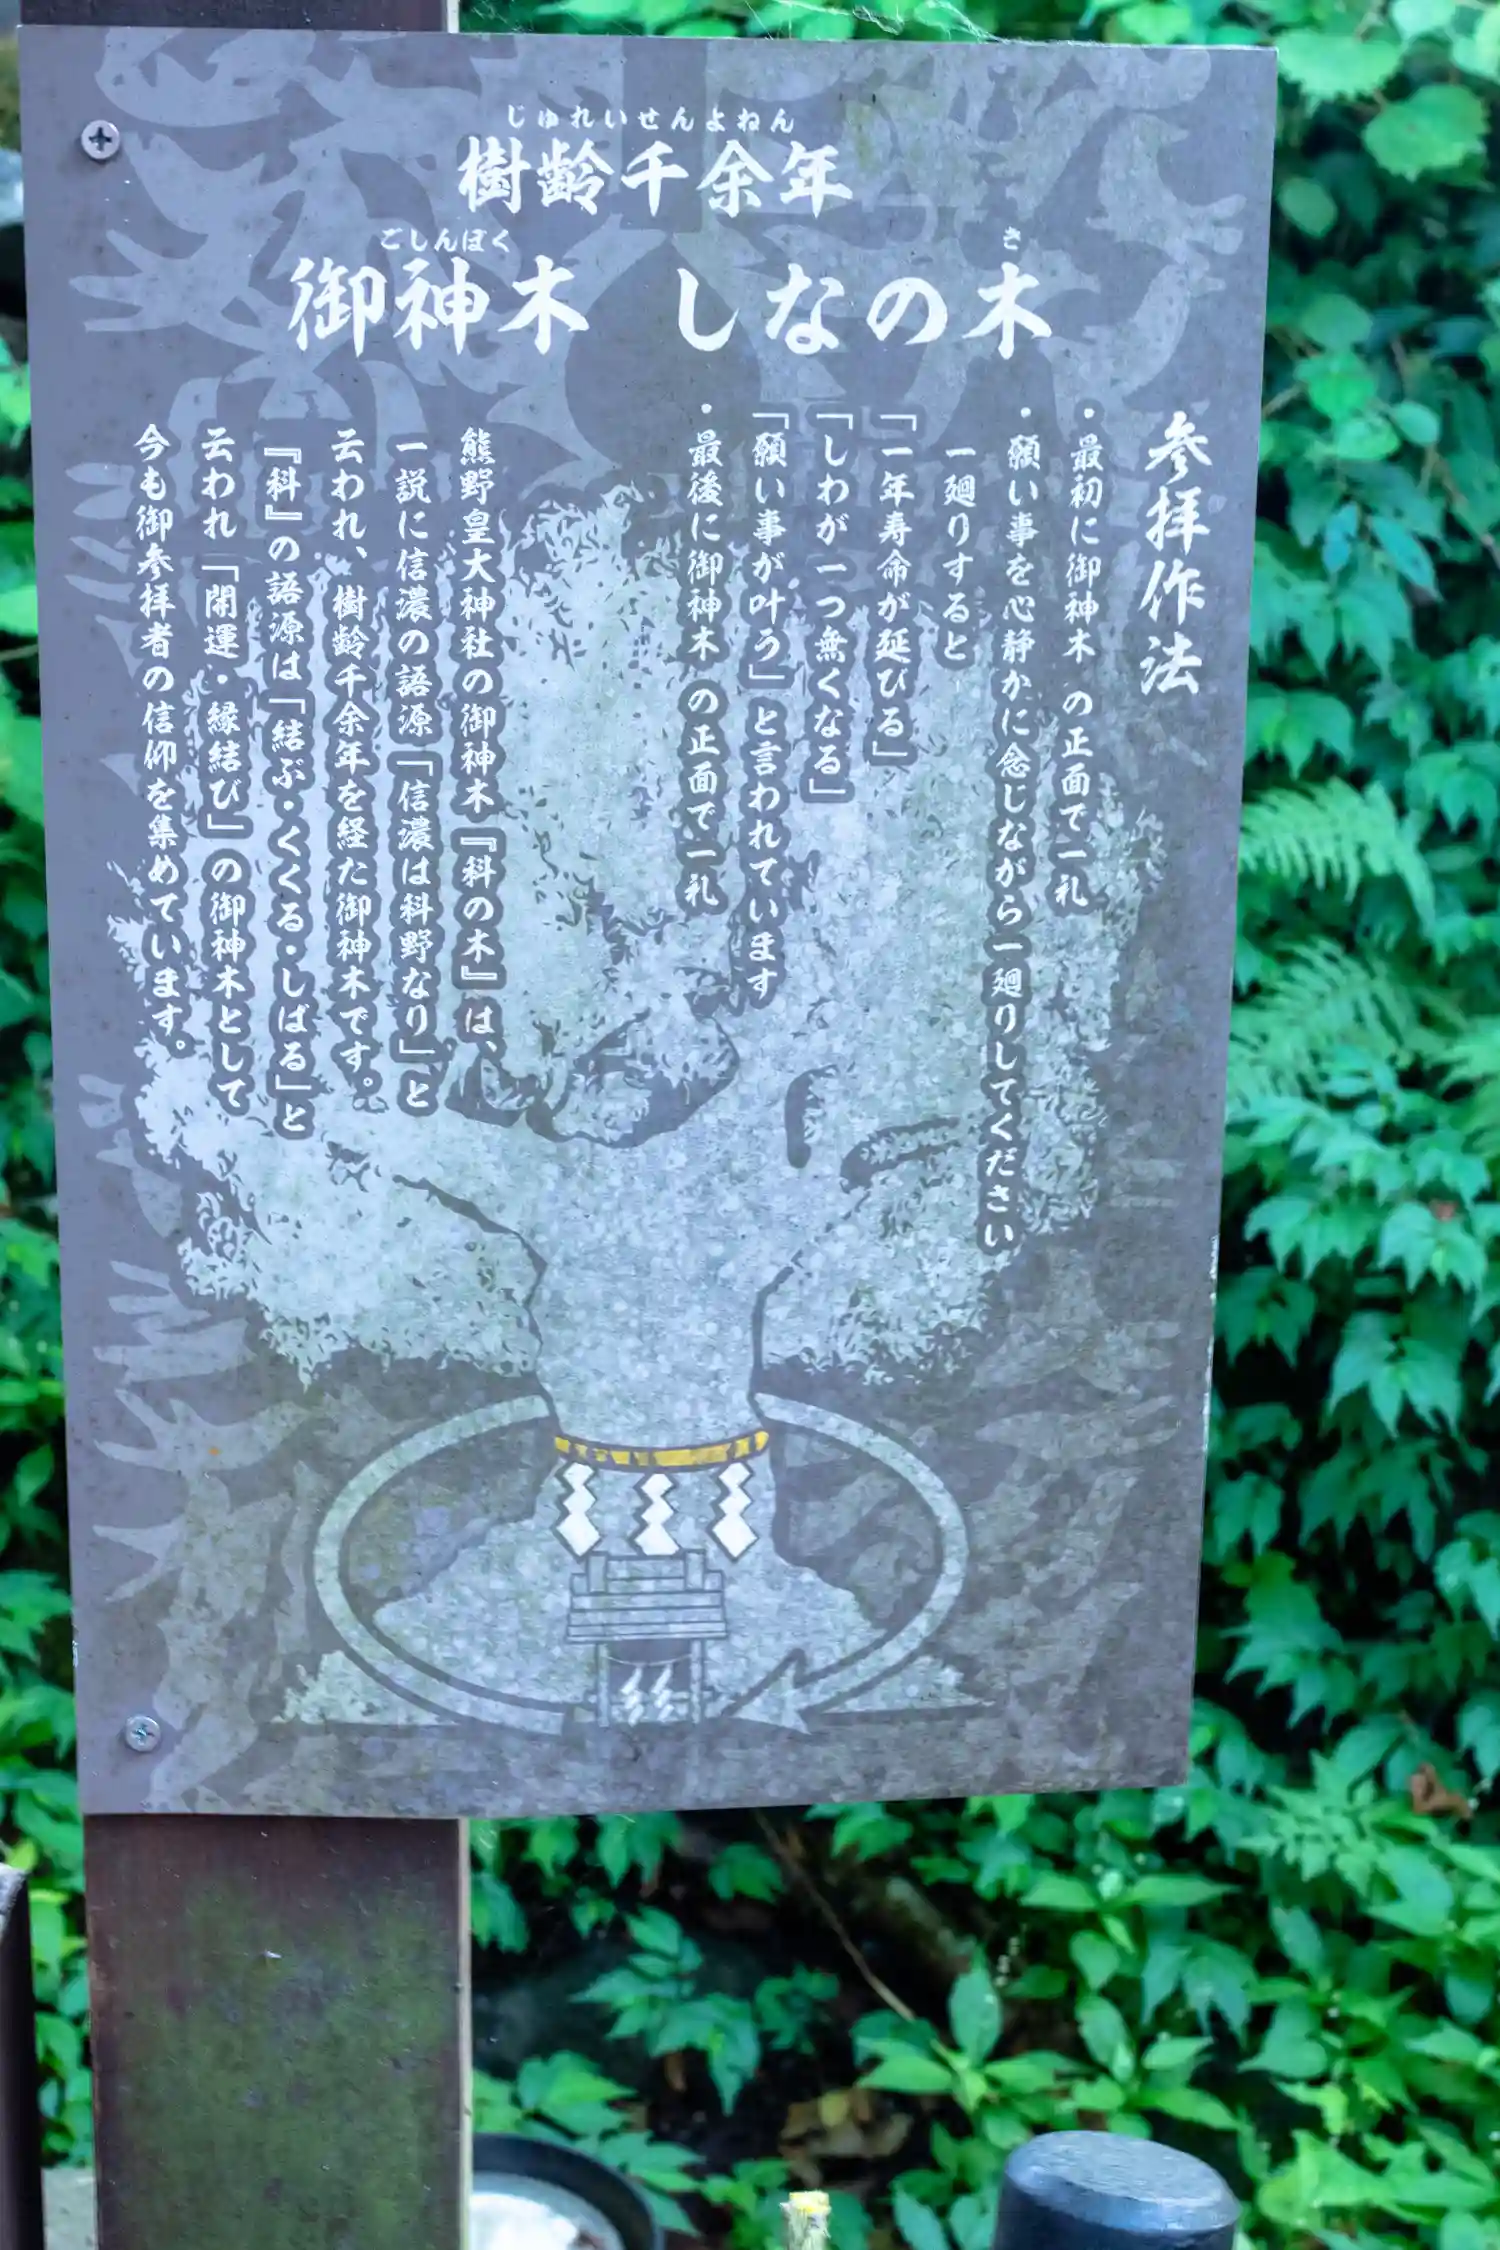 じゅれいせんよねん
樹齢千余年
ごしんぼく き
御神木 しなの木
参拝作法
・最初に御神木 の正面で一礼
・願い事を心静かに念じながら一廻りしてください
一廻りすると
「一年寿命が延びる」
「しわが一つ無くなる」
「願い事が叶う」と言われています
・最後に御神木 の正面で一礼
熊野皇大神社の御神木『科の木』は、
一説に信濃の語源「信濃は科野なり」と
云われ、樹齢千余年を経た御神木です。
『科』の語源は「結ぶ・くくる・しばる」と
云われ「開運・縁結び」の御神木として
今も御参拝者の信仰を集めています。